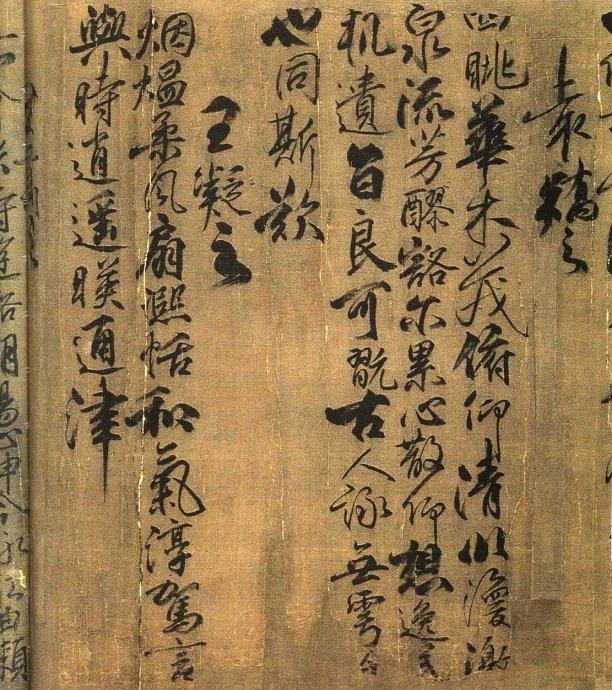 袁矯之
四眺華木茂俯仰清川漫激
泉流芳醪豁尔累心散仰想逸民
机遺旨良可翫古人詠無雩今
也同斯歎
王凝之
烟熅柔風扇熙恬和氣淳駕言
興時逍遥暎通津